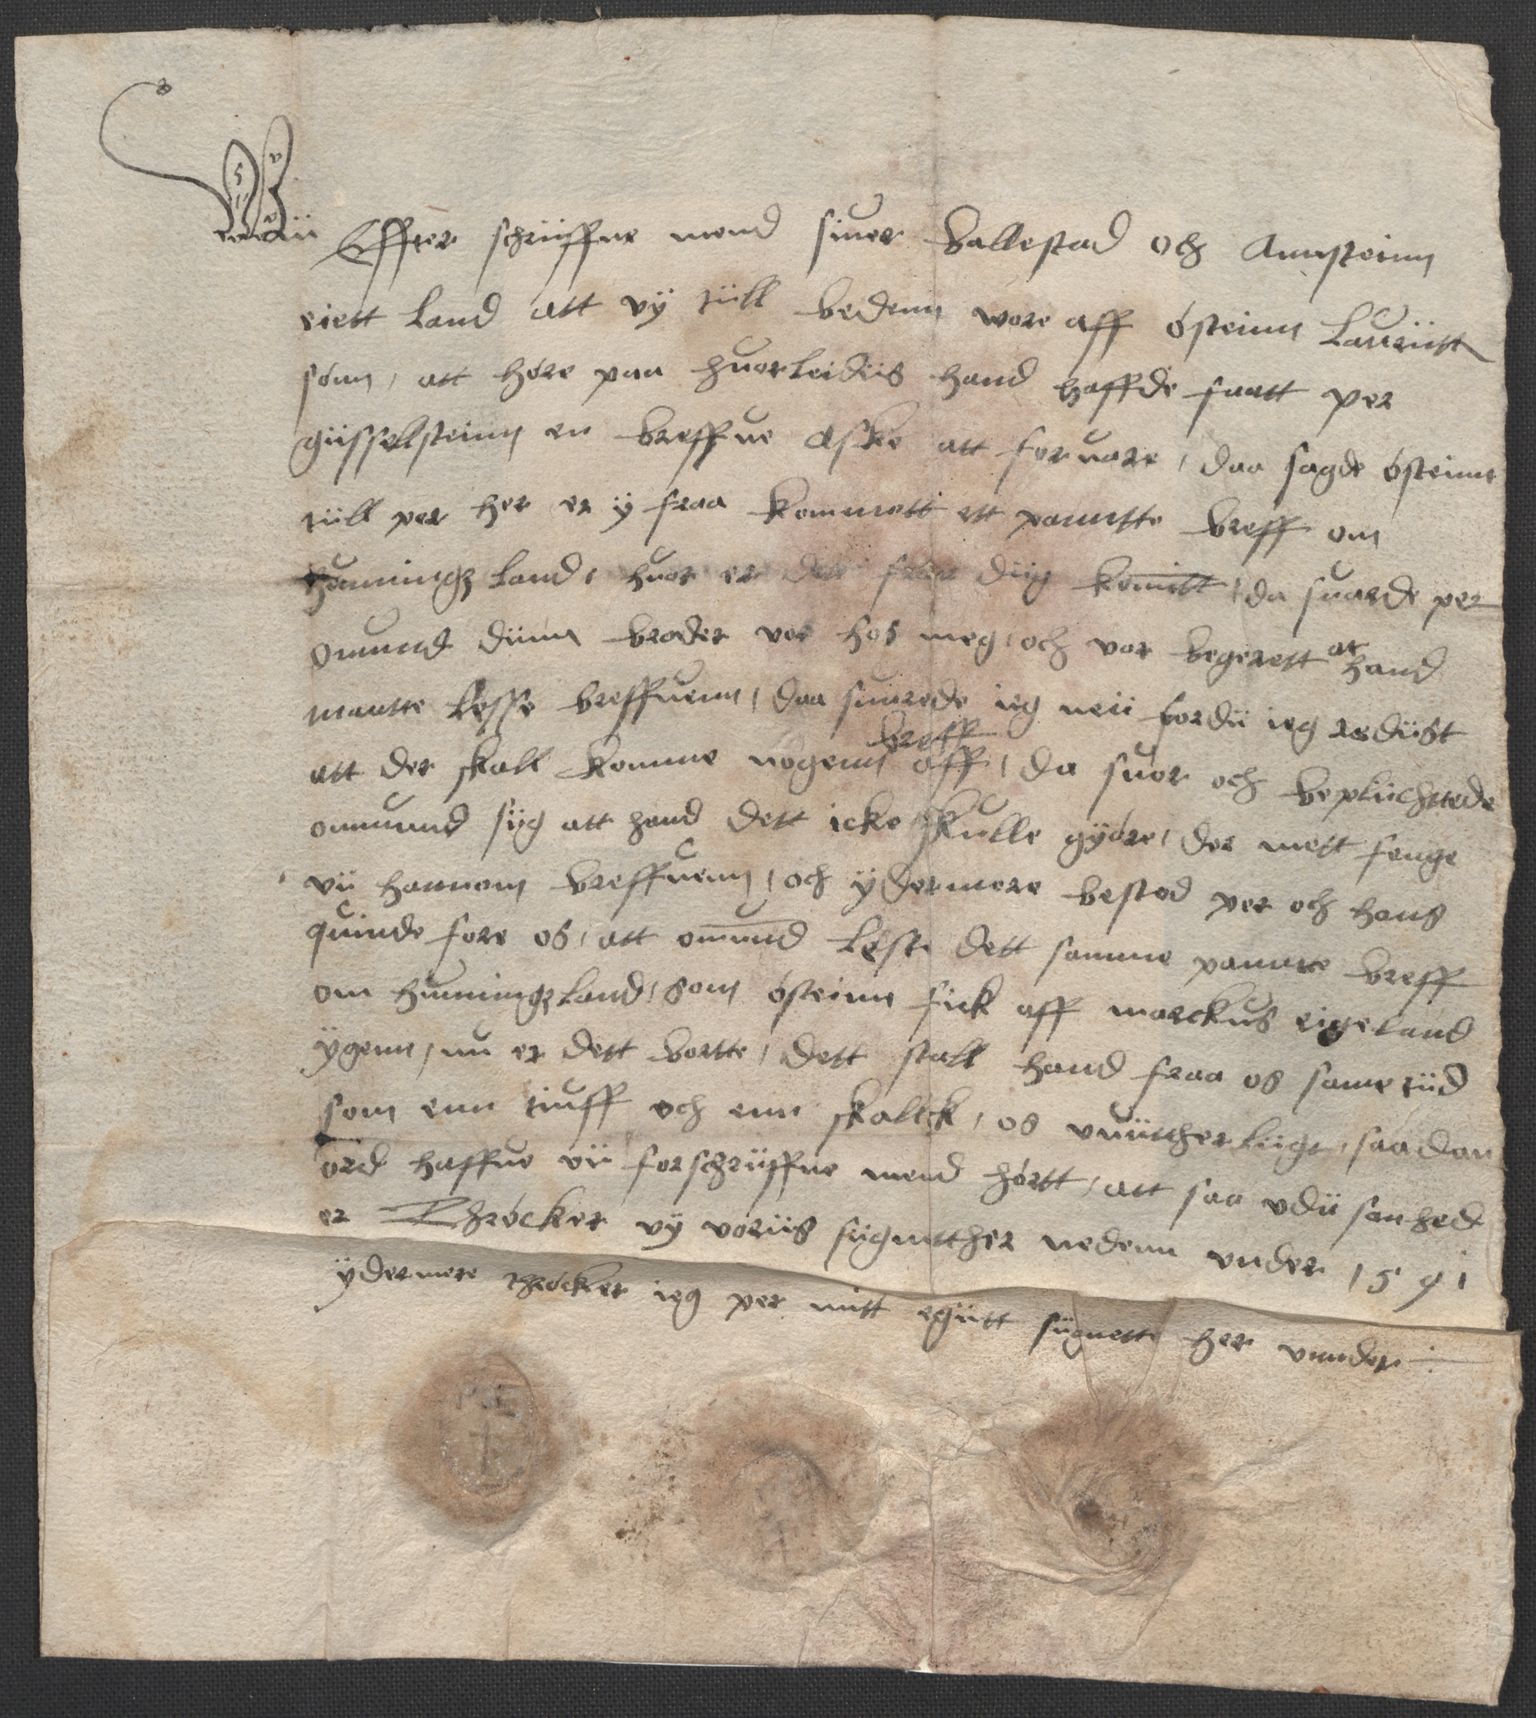 Wii Effter schriiffne mend siuer ballestad och Aunsteinn
eiett land att vÿ tiill bedenn wore aff østeinn lauriitt
sønn, att høre paa huorleidiis hand haffde faatt per
giisselsteinn en breffue Æske att foruare, daa sagde østeinn
tiill per her er ÿ fraa kommett ett pantte breff om
hunningz land, huor er dett fraa diig komitt, da suarde per
omund diinn broder vor hos meg, och vor begerett at hand
maatte lesse breffuenn, daa suarede ieg neii fordii ieg redist
att der skall komme nogenn breff aff, da suor och bepliichttede
ommund siig att hand dett icke skulle gÿøre, der mett fenge
vii hannom breffuenn, och ÿdermere bestod per och hans
quinde fore os, att omund leste dett samme pantte breff
om hunningzland, som østeinn fick aff marckus eigeland
ÿgenn, nu er dett bortte, dett stall hand fraa os same tiid
som enn tiuff och enn skalck, os vuiittherliige, saadan
ord haffue vii forschriiffne mend hørtt, att saa vdii sanhed
er Thrøcker vÿ voriis siignetther nedenn vnder 1591
ÿdermere thrøcker ieg per mitt egiitt siignette her vnnder